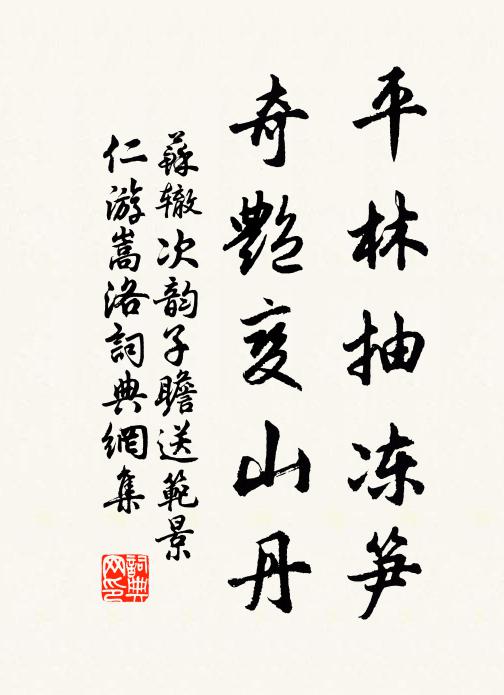 平林抽冻笋
奇艷变山丹
蘇辙次韵子瞻送範景
仁游嵩洛詞典網集
詞典
网印